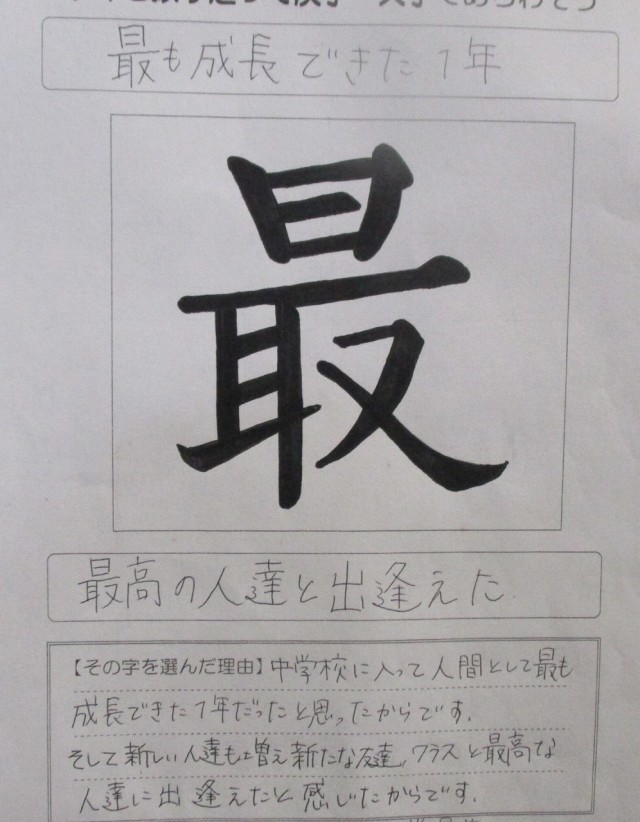 最も成長できた1年
最
最高の人達と出逢えた
【その字を選んだ理由】中学校に入って人間として最も
成長できた1年だったと思ったからです。
そして新しい人達も増え新たな友達、クラスと最高な
人達に出逢えたと感じたからです。